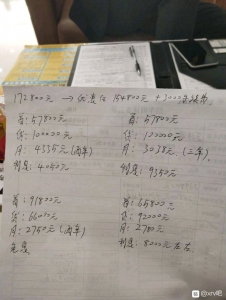 172800元 → 优惠后 154800元 + 3000
首:57800元
贷:100000元
月:4335元(两年)
利息:4050元
首:57800元
贷:100000元
月:3038元(三年)
利息:9350元
首:91800元
贷:66000元
月:2750元(两年)
首:65800元
贷:92000元
月:2780元
利息:8000元左右